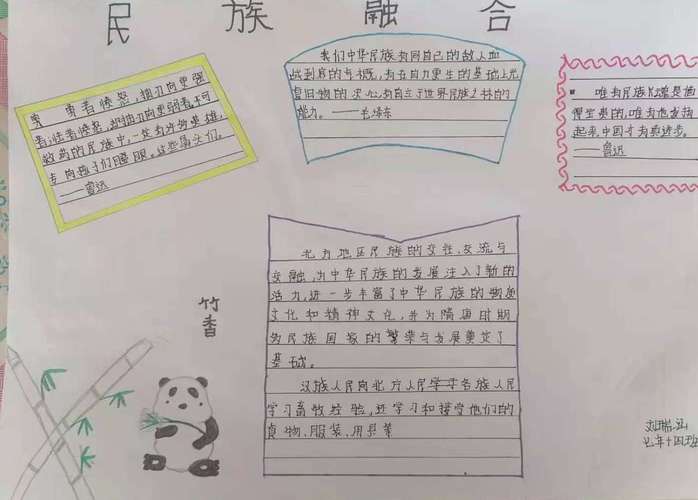 民族融合
勇者愤怒,抽刃向更强
者;怯者愤怒,却抽刃向更弱者,不可
救药的民族中,一定有许多英雄,
专向孩子们瞪眼。这些孱头们。
——鲁迅
我们中华民族有同自己的敌人血
战到底的气概,有在自力更生的基础上光
复旧物的决心,有自立于世界民族之林的
能力。——毛泽东
唯有民族魂是值
得宝贵的,唯有他发扬
起来,中国才有真进步。
——鲁迅
北方地区民族的交往、交流与
交融,为中华民族的发展注入了新的
活力,进一步丰富了中华民族的物质
文化和精神文化,并为隋唐时期
多民族国家的繁荣与发展奠定了
基础。
汉族人民向北方人民等各族人民
学习畜牧经验,还学习和接受他们的
食物、服装、用具等
竹香
七年十四班